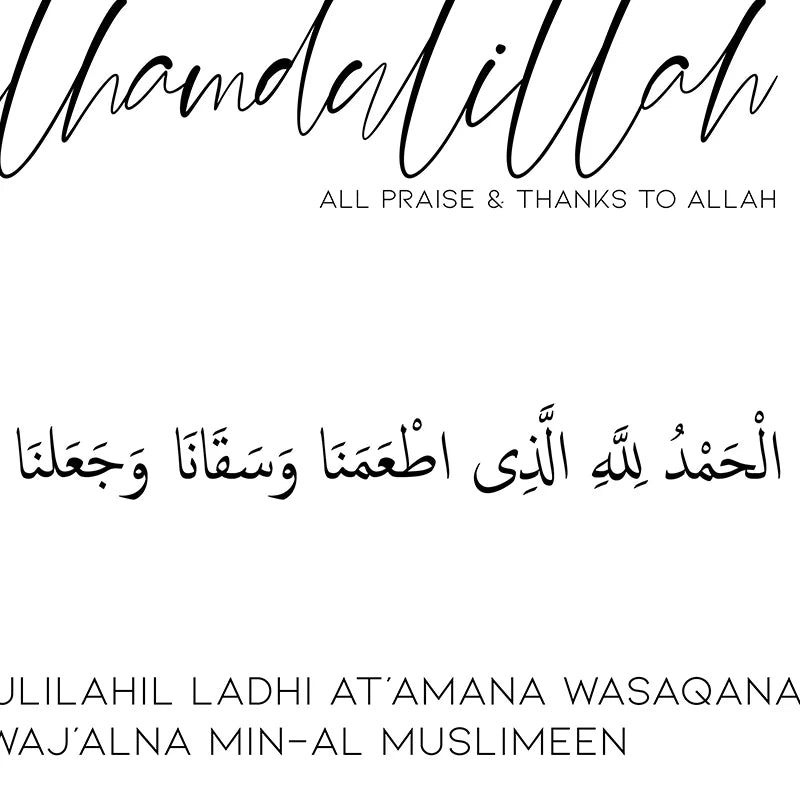 lhamdulillah
ALL PRAISE & THANKS TO ALLAH
الْحَمْدُ لِلَّهِ الَّذِى اطْعَمَنَا وَسَقَانَا وَجَعَلنَا
ULILAHIL LADHI AT'AMANA WASAQANA
WAJ'ALNA MIN-AL MUSLIMEEN